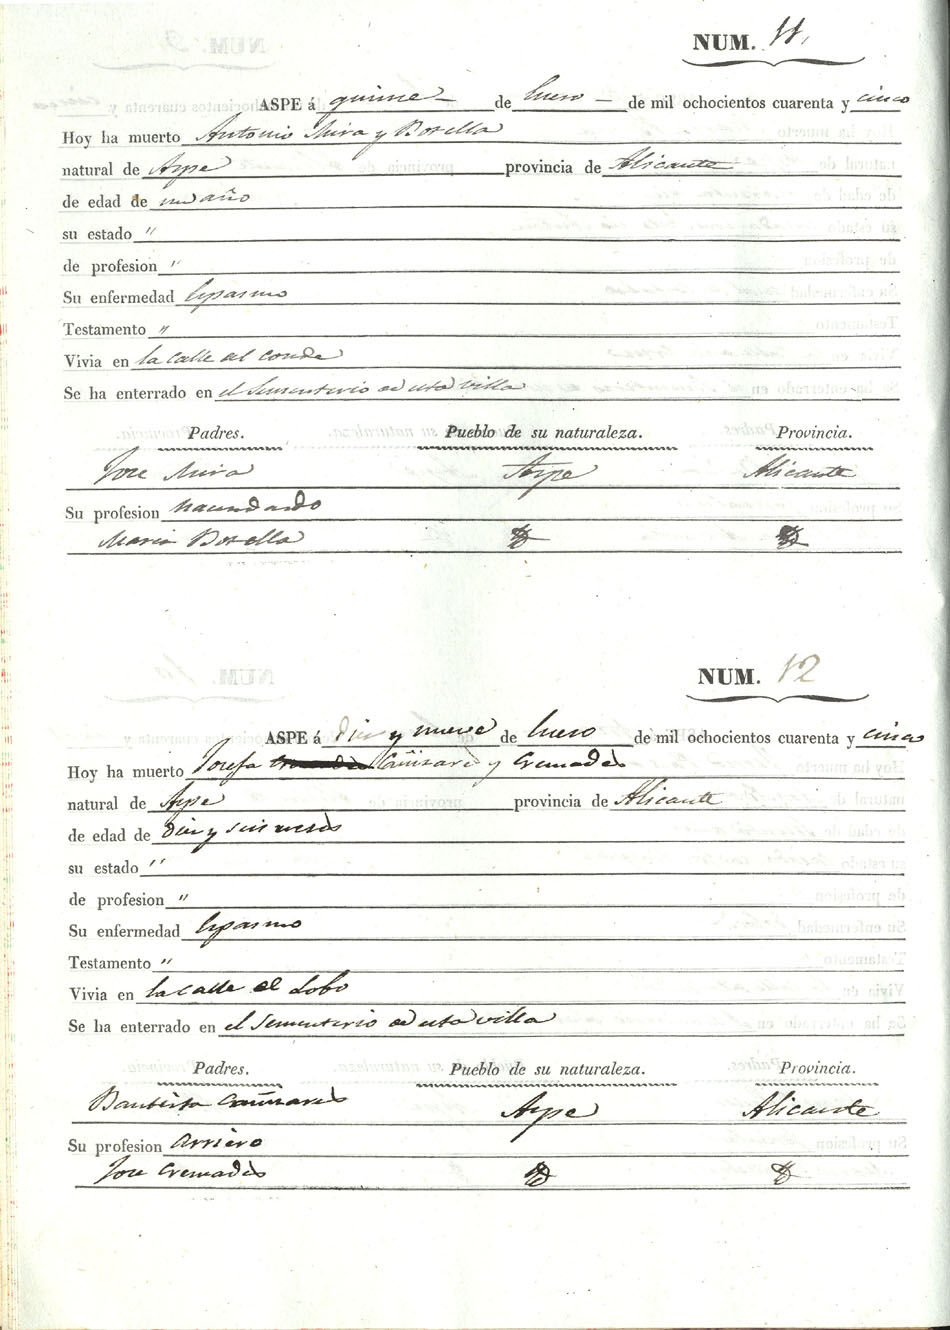 NUM. 11.
ASPE á quinse de Enero de mil ochocientos cuarenta y cinco
Hoy ha muerto Antonio Mira y Botella
natural de Aspe provincia de Alicante
de edad de un año
su estado "
de profesion "
Su enfermedad Espasmo
Testamento "
Vivia en la calle del conde
Se ha enterrado en el Sementerio de esta villa
Padres. Pueblo de su naturaleza. Provincia.
Jose Mira Aspe Alicante
Su profesion
Maria Botella
NUM. 12
ASPE á dies y nueve de Enero de mil ochocientos cuarenta y cinco
Hoy ha muerto Josefa Cañisares y Cremades
natural de Aspe provincia de Alicante
de edad de dies y seis meses
su estado "
de profesion "
Su enfermedad Espasmo
Testamento "
Vivia en la calle el Lobo
Se ha enterrado en el Sementerio de esta villa
Padres. Pueblo de su naturaleza. Provincia.
Bautista Cañisares Aspe Alicante
Su profesion arriero
Jose Cremades